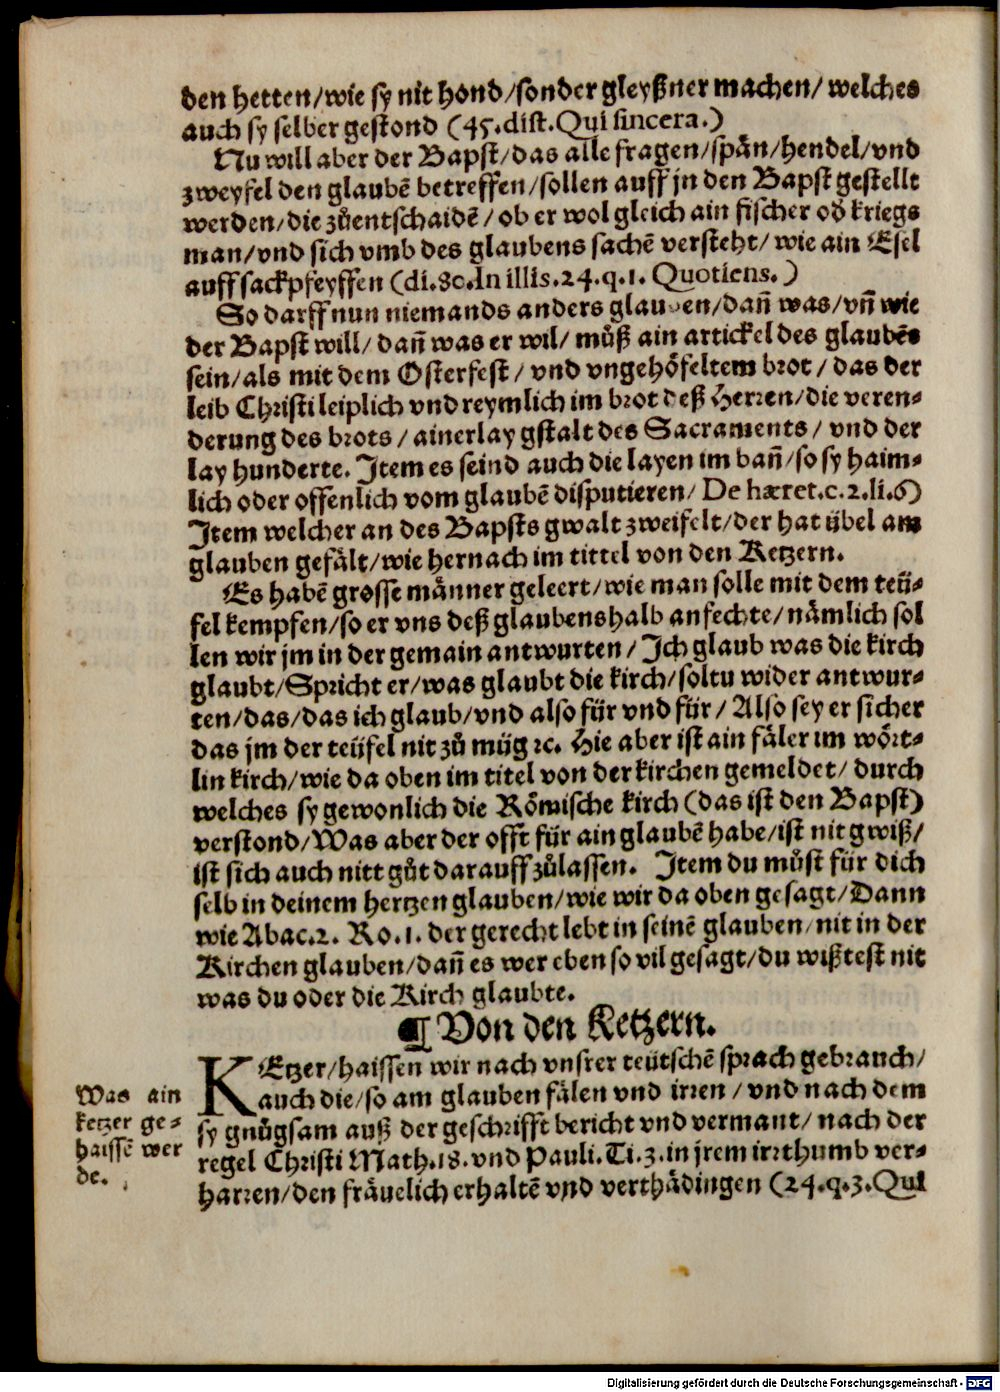 den hetten/wie sy nit hond/sonder gleyßner machen/ welches
auch sy selber gestond (45.dist.Qui sincera.)
Nu will aber der Bapst/das alle fragen/spän/hendel/vnd
zweyfel den glaubē betreffen/sollen auff jn den Bapst gestellt
werden/die zůentschaidē/ ob er wol gleich ain fischer od̕ kriegs
man/vnd sich vmb des glaubens sachē versteht/ wie ain Esel
auff sackpfeyffen (di.80.In illis.24.q.1. Quotiens.)
So darff nun niemands anders glauben/dañ was/vñ wie
der Bapst will/ dañ was er wil/ můß ain artickel des glaubēs
sein/als mit dem Osterfest/ vnd vngehöfeltem brot/ das der
leib Christi leiplich vnd reymlich im brot deß Herren/die veren-
derung des brots/ ainerlay gstalt des Sacraments/ vnd der
lay hunderte. Item es seind auch die layen im bañ/so sy haim-
lich oder offenlich vom glaubē disputieren/ De hæret.c.2.li.6)
Item welcher an des Bapsts gwalt zweifelt/der hat übel am
glauben gefält/wie hernach im tittel von den Ketzern.
Es habē grosse männer geleert/wie man solle mit dem teü-
fel kempfen/so er vns deß glaubenshalb anfechte/nämlich sol
len wir jm in der gemain antwurten/ Ich glaub was die kirch
glaubt/Spricht er/was glaubt die kirch/soltu wider antwur-
ten/das/das ich glaub/vnd also für vnd für/ Also sey er sicher
das jm der teüfel nit zů müg ꝛc. Hie aber ist ain fäler im wört-
lin kirch/wie da oben im titel von der kirchen gemeldet/ durch
welches sy gewonlich die Römische kirch (das ist den Bapst)
verstond/Was aber der offt für ain glaubē habe/ist nit gwiß/
ist sich auch nitt gůt darauff zůlassen. Item du můst für dich
selb in deinem hertzen glauben/wie wir da oben gesagt/Dann
wie Abac.2. Ro.1. der gerecht lebt in seinē glauben/nit in der
Kirchen glauben/dañ es wer eben so vil gesagt/du wißtest nit
was du oder die Kirch glaubte.
¶ Von den Ketzern.
KEtzer/haissen wir nach vnsrer teütschē sprach gebrauch/
auch die/so am glauben fälen vnd irren/ vnd nach dem
sy gnůgsam auß der geschrifft bericht vnd vermant/ nach der
regel Christi Math.18.vnd Pauli.Ti.3.in jrem irrthumb ver-
harren/den fräuelich erhaltē vnd verthädingen (24.q.3.Qui
Was ain
ketzer ge-
haissē wer
de.
Digitalisierung gefördert durch die Deutsche Forschungsgemeinschaft - DFG